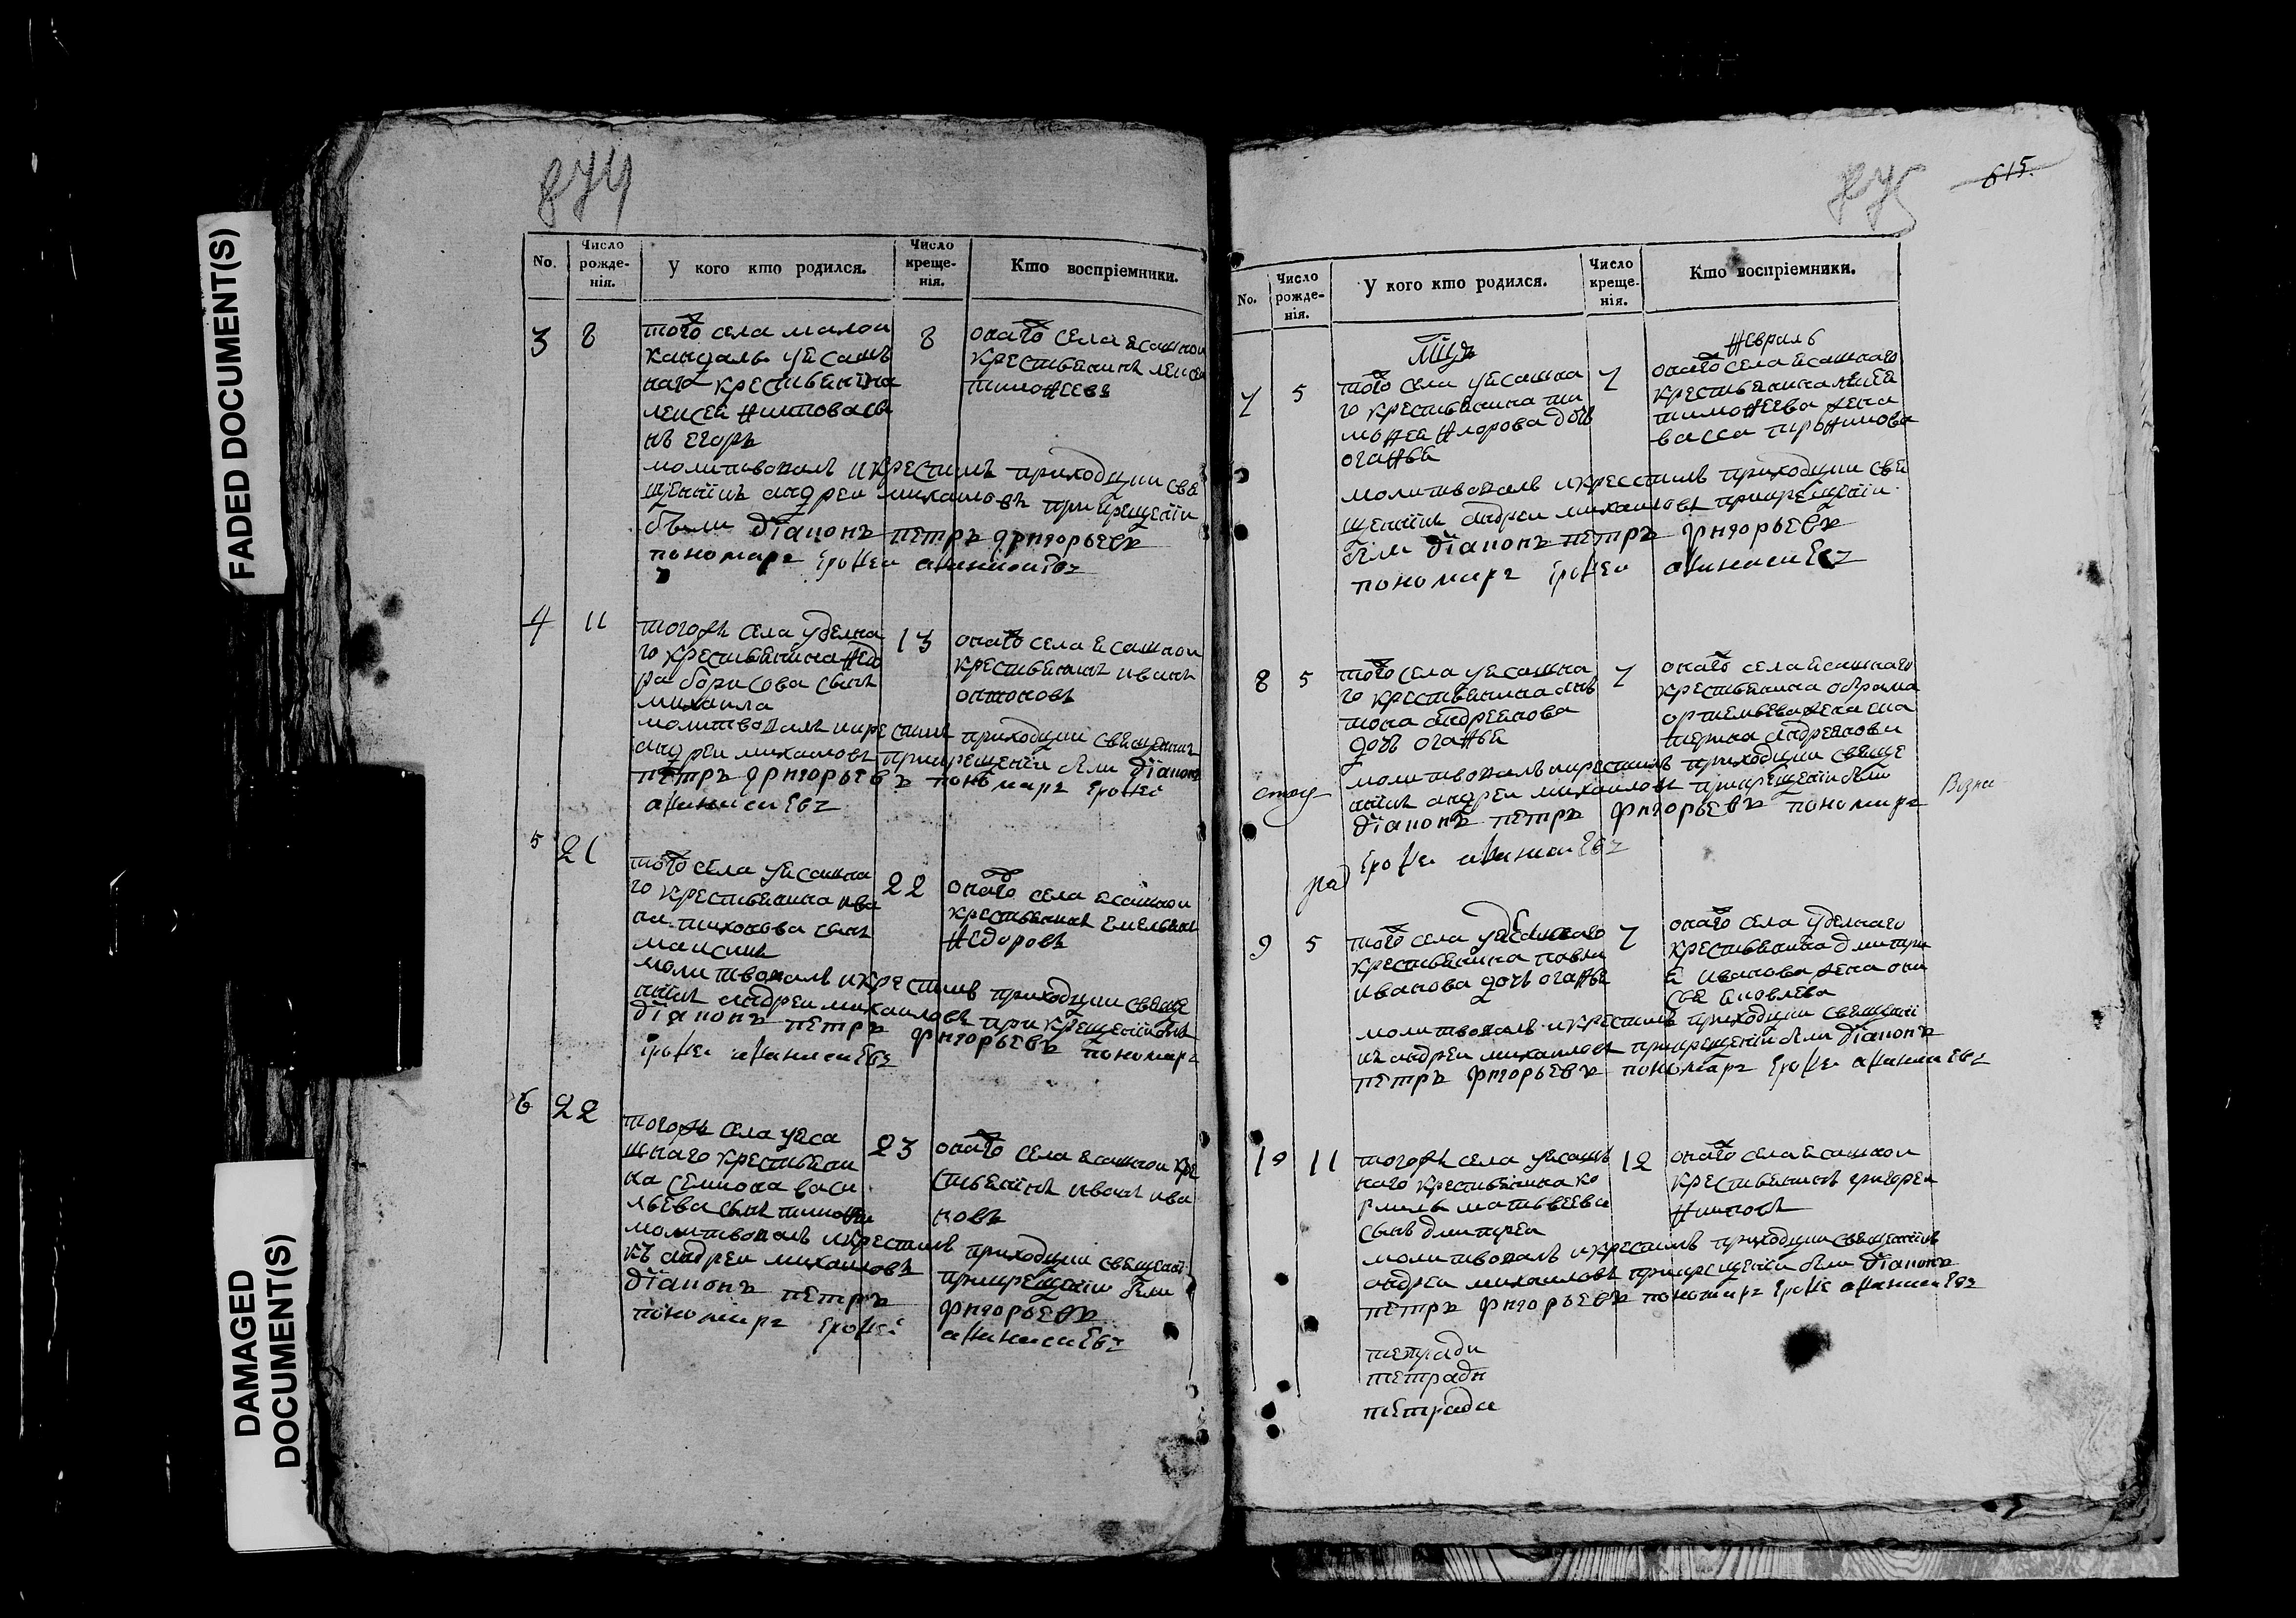 FADED DOCUMENT(S)
DAMAGED DOCUMENT(S)
874
No.
Число рожде-нія.
У кого кто родился.
Число креще-нія.
Кто воспріемники.
3 8
того села малои
кандалы уясашъ
наго крестьянина
лексея Титова сы
нъ егоръ
8
онаго села ясашнои
крестьянинъ
тимоѳеевъ
молитвовалъ икрестилъ приходции свя
щенникъ андреи михаиловъ прикрещенiи
были дїаконъ петръ григорьевъ
пономарь ерофеи афанасиевъ
4 11
тогожъ села уделна
го крестьянина федо
ра борисова сынъ
михаила
13
онаго села ясашнои
крестьянинъ иванъ
онтоновъ
молитвовалъ икрестилъ приходции священникъ
андреи михаиловъ прикрещенiи были дїаконъ
петръ григорьевъ пономарь ерофеи
афанасиевъ
5 21
того села уясашна
го крестьянина ива
на тихонова сынъ
максимъ
22
онаго села ясашнои
крестьянинъ емельянъ
федоровъ
молитвовалъ икрестилъ приходции свяще
нникъ андреи михаиловъ прикрещенiи были
дїаконъ петръ григорьевъ пономарь
ерофеи афанасиевъ
6 22
тогожъ села уяса
шнаго крестьяни
на семиона васи
льева сынъ тимофеи
23
онаго села ясашнои кре
стьянинъ иванъ ива
новъ
молитвовалъ икрестилъ приходции священни
къ андреи михаиловъ прикрещенiи были
дїаконъ петръ григорьевъ
пономарь ерофеи афанасиевъ
875
615.
No.
Число рожде-нія.
У кого кто родился.
Число креще-нія.
Кто воспріемники.
Мцъ февраль
7 5
того села уясашна
го крестьянина ти
мофея флорова дочь
огафья
7
онаго села ясашнаго
крестьянина
тимофеева жена
васса трофимова
молитвовалъ икрестилъ приходции свя
щенникъ андреи михаиловъ прикрещенiи
были дїаконъ петръ григорьевъ
пономарь ерофеи афанасиевъ
8 5
того села уясашна
го крестьянина ан
тона андреянова
дочь огафья
7
онаго села ясашнаго
крестьянина обрама
ортемьева жена ека
терина андреянова
молитвовалъ икрестилъ приходции свяще
нникъ андреи михаиловъ прикрещенiи были
дїаконъ петръ григорьевъ пономарь
ерофеи афанасиевъ
9 5
того села уделнаго
крестьянина павла
иванова дочь огафья
7
онаго села уделнаго
крестьянина дмитри
я иванова жена они
сья яковлева
молитвовалъ икрестилъ приходции священни
къ андреи михаиловъ прикрещенiи были дїаконъ
петръ григорьевъ пономарь ерофеи афанасиевъ
10 11
тогожъ села уясашъ
наго крестьянина ко
рнила матвеева
сынъ дмитреи
12
онаго села ясашнои
крестьянинъ григореи
титовъ
молитвовалъ икрестилъ приходции священникъ
андреи михаиловъ прикрещенiи были дїаконъ
петръ григорьевъ пономарь ерофеи афанасиевъ
тетради
тетради
тетради